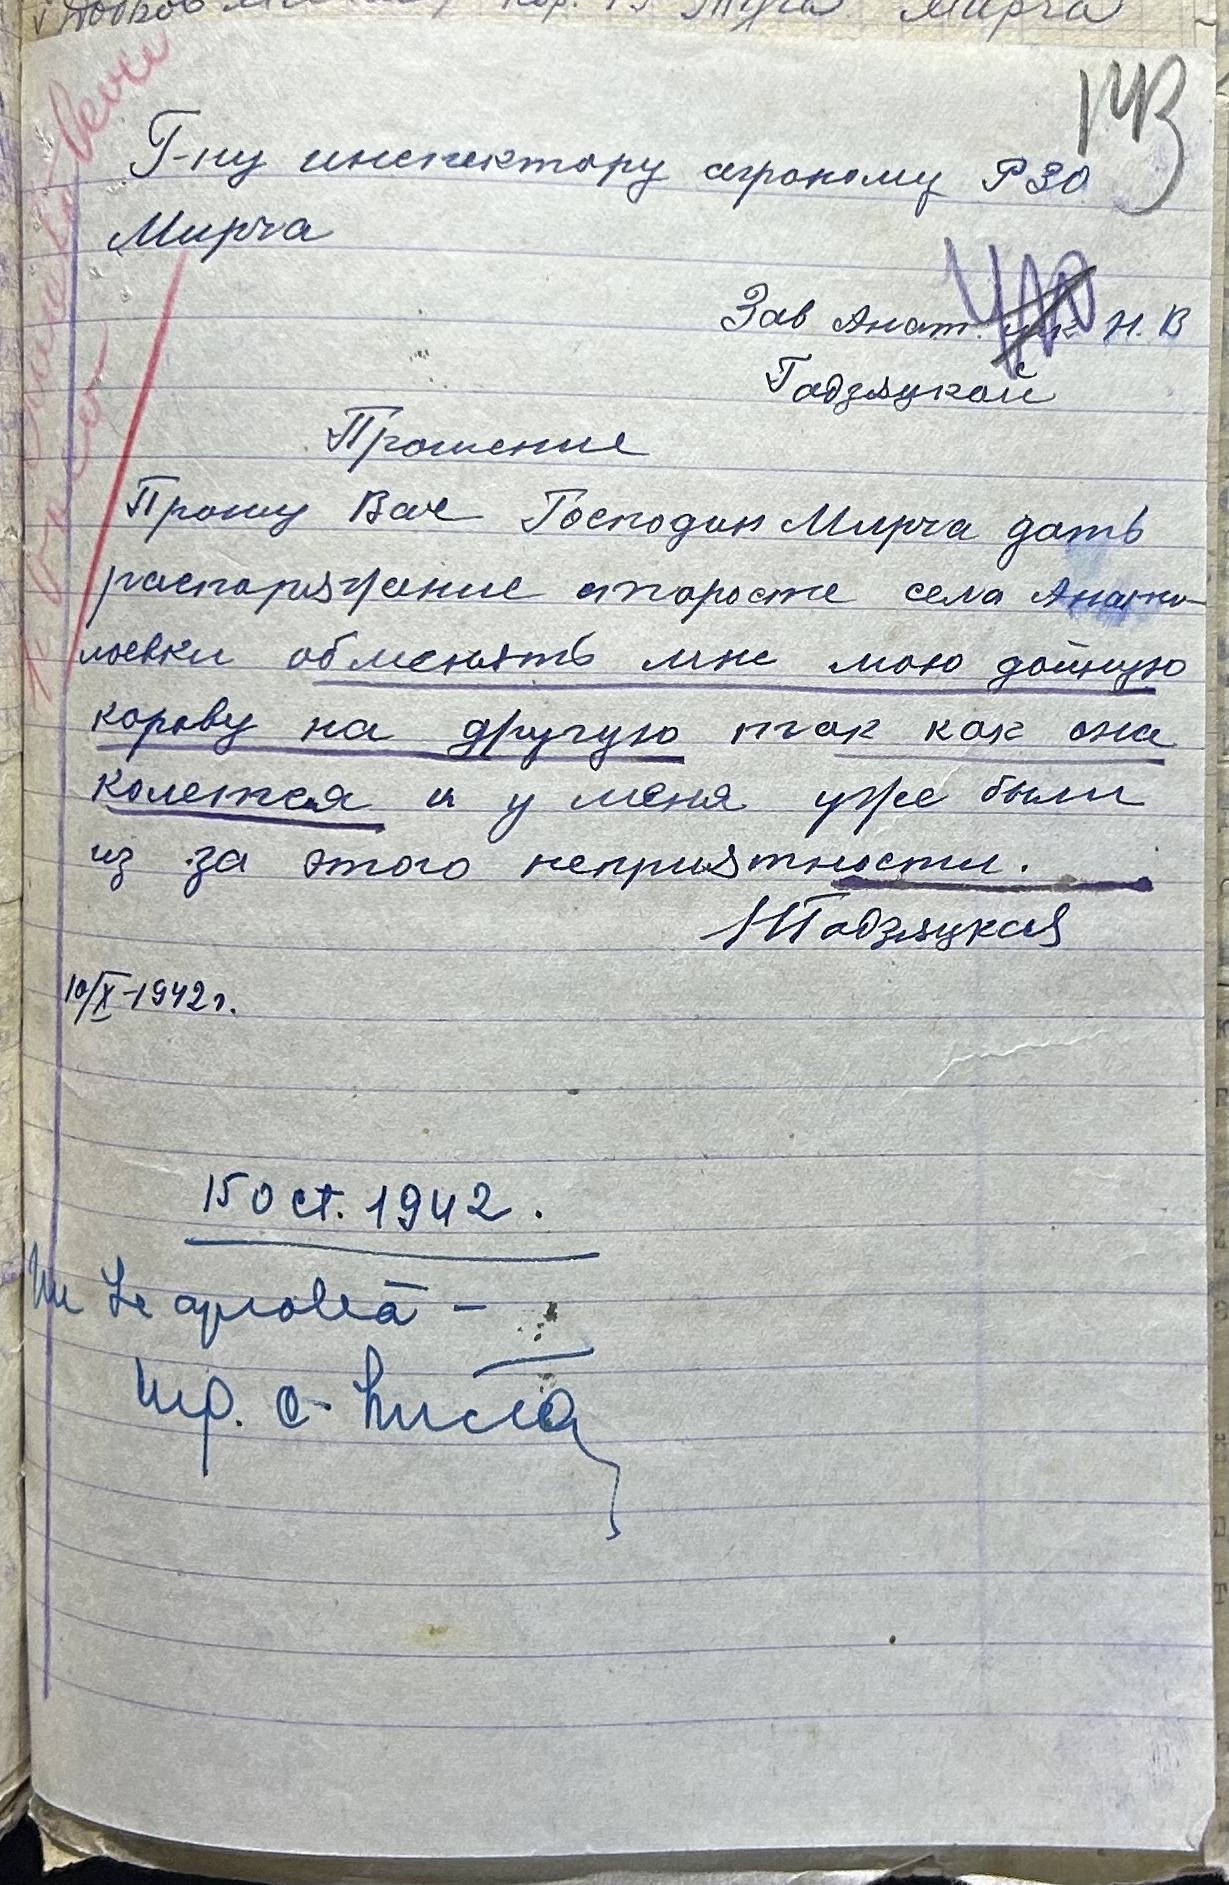 143
Г-ну инспектору агроному РЗО
Мирча
Зав Анат. Н. В
Гадзяцкой
Прошение
Прошу Вас Господин Мирча дать
распоряжение старосте села Анато-
лоевки обменять мне мою дойную
корову на другую так как она
колется и у меня уже были
из за этого неприятности.
НГадзяцкая
10/X-1942г.
15 Oct. 1942.
Nu se aprobă -